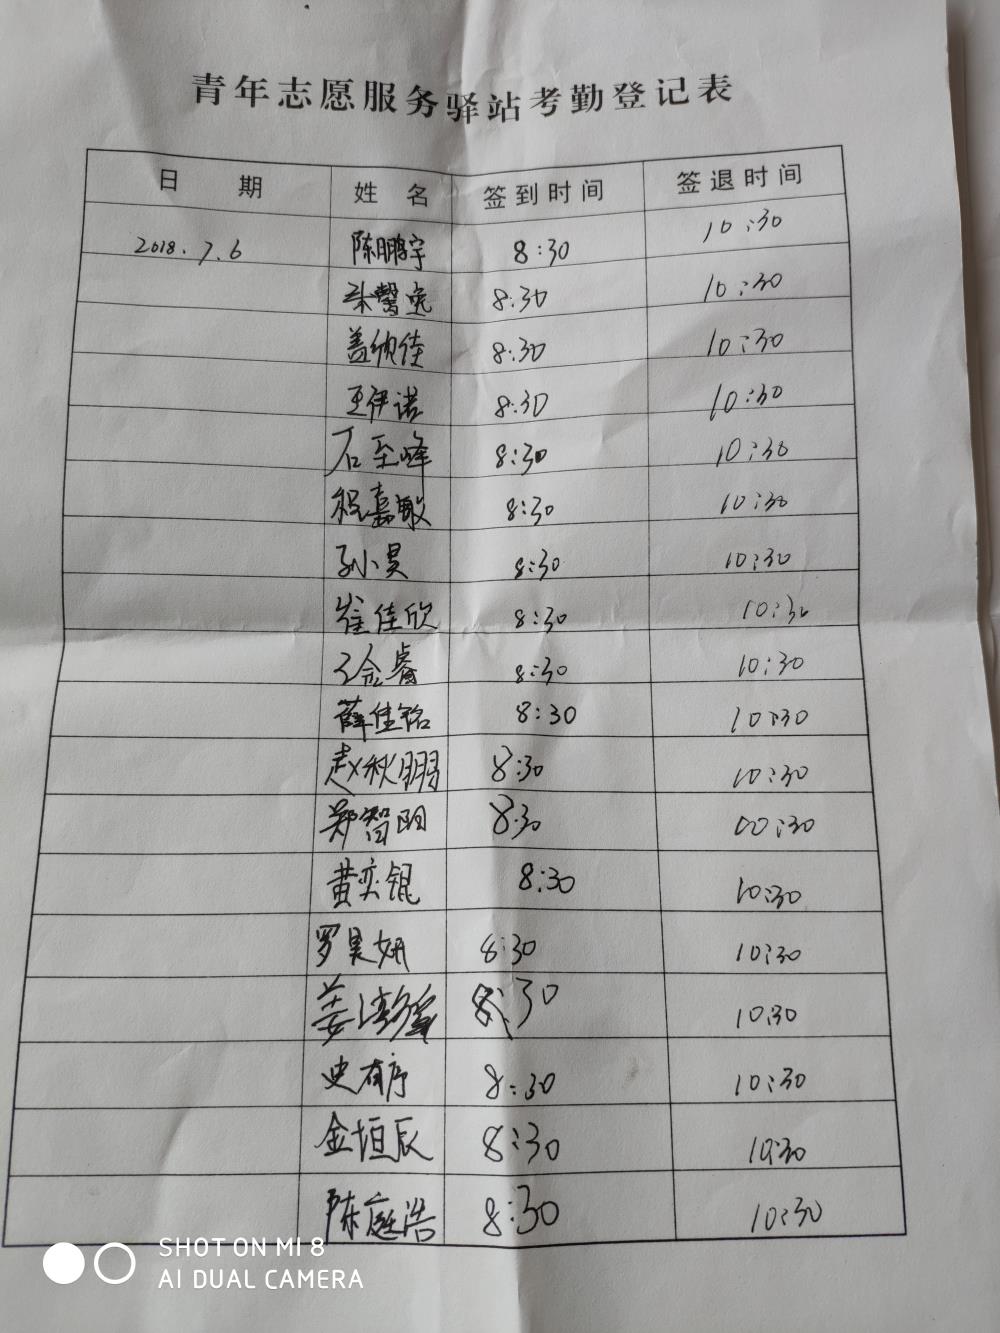 青年志愿服务驿站考勤登记表
日 期 姓 名 签到时间 签退时间
2018.7.6 陈鹏宇 8:30 10:30
8:30 10:30
盖欣佳 8:30 10:30
王伊诺 8:30 10:30
石至峰 8:30 10:30
程嘉敏 8:30 10:30
孙小昊 8:30 10:30
崔佳欣 8:30 10:30
8:30 10:30
薛佳铭 8:30 10:30
赵秋鹏 8:30 10:30
郑智阳 8:30 10:30
黄奕锟 8:30 10:30
罗昊妍 8:30 10:30
姜 8:30 10:30
史有序 8:30 10:30
金垣辰 8:30 10:30
陈庭浩 8:30 10:30
SHOT ON MI 8
AI DUAL CAMERA